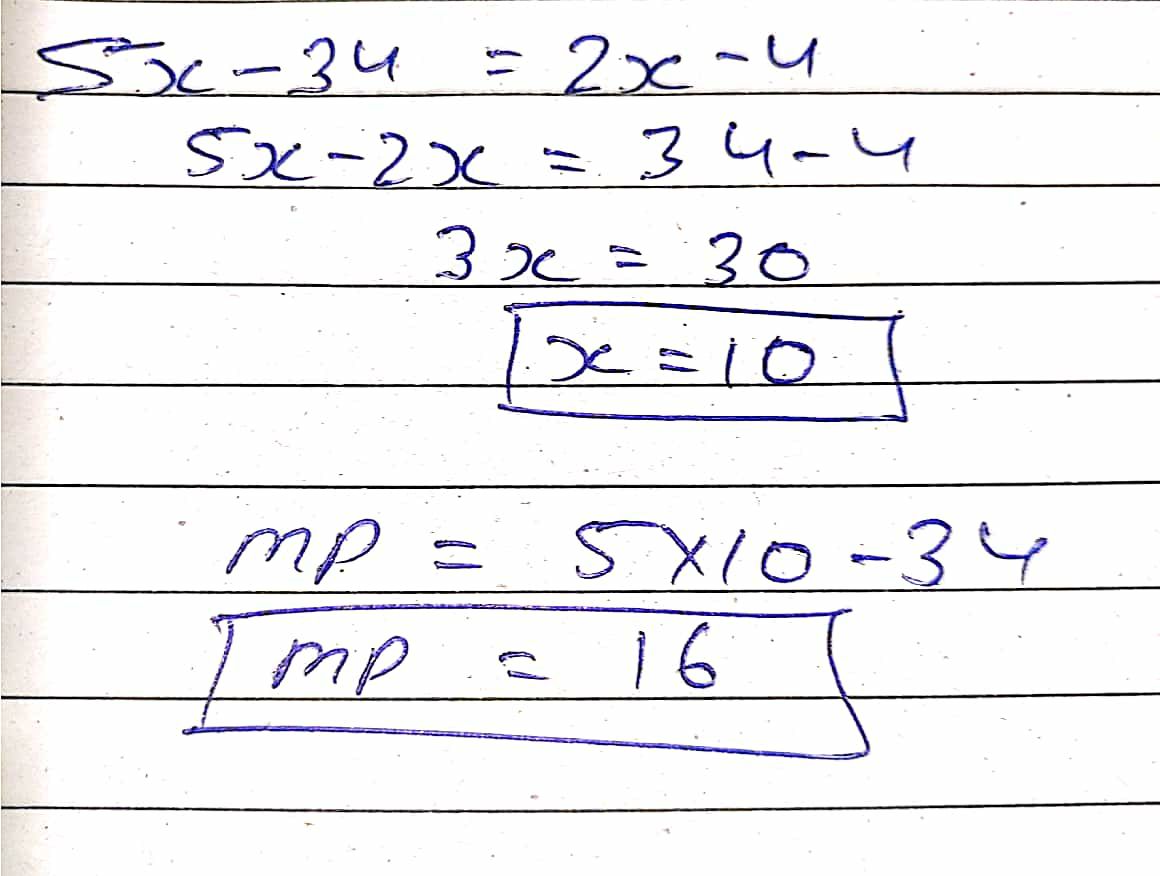 5x - 34 = 2x - 4
5x - 2x = 34 - 4
3x = 30
x = 10
mp = 5x10 - 34
mp = 16